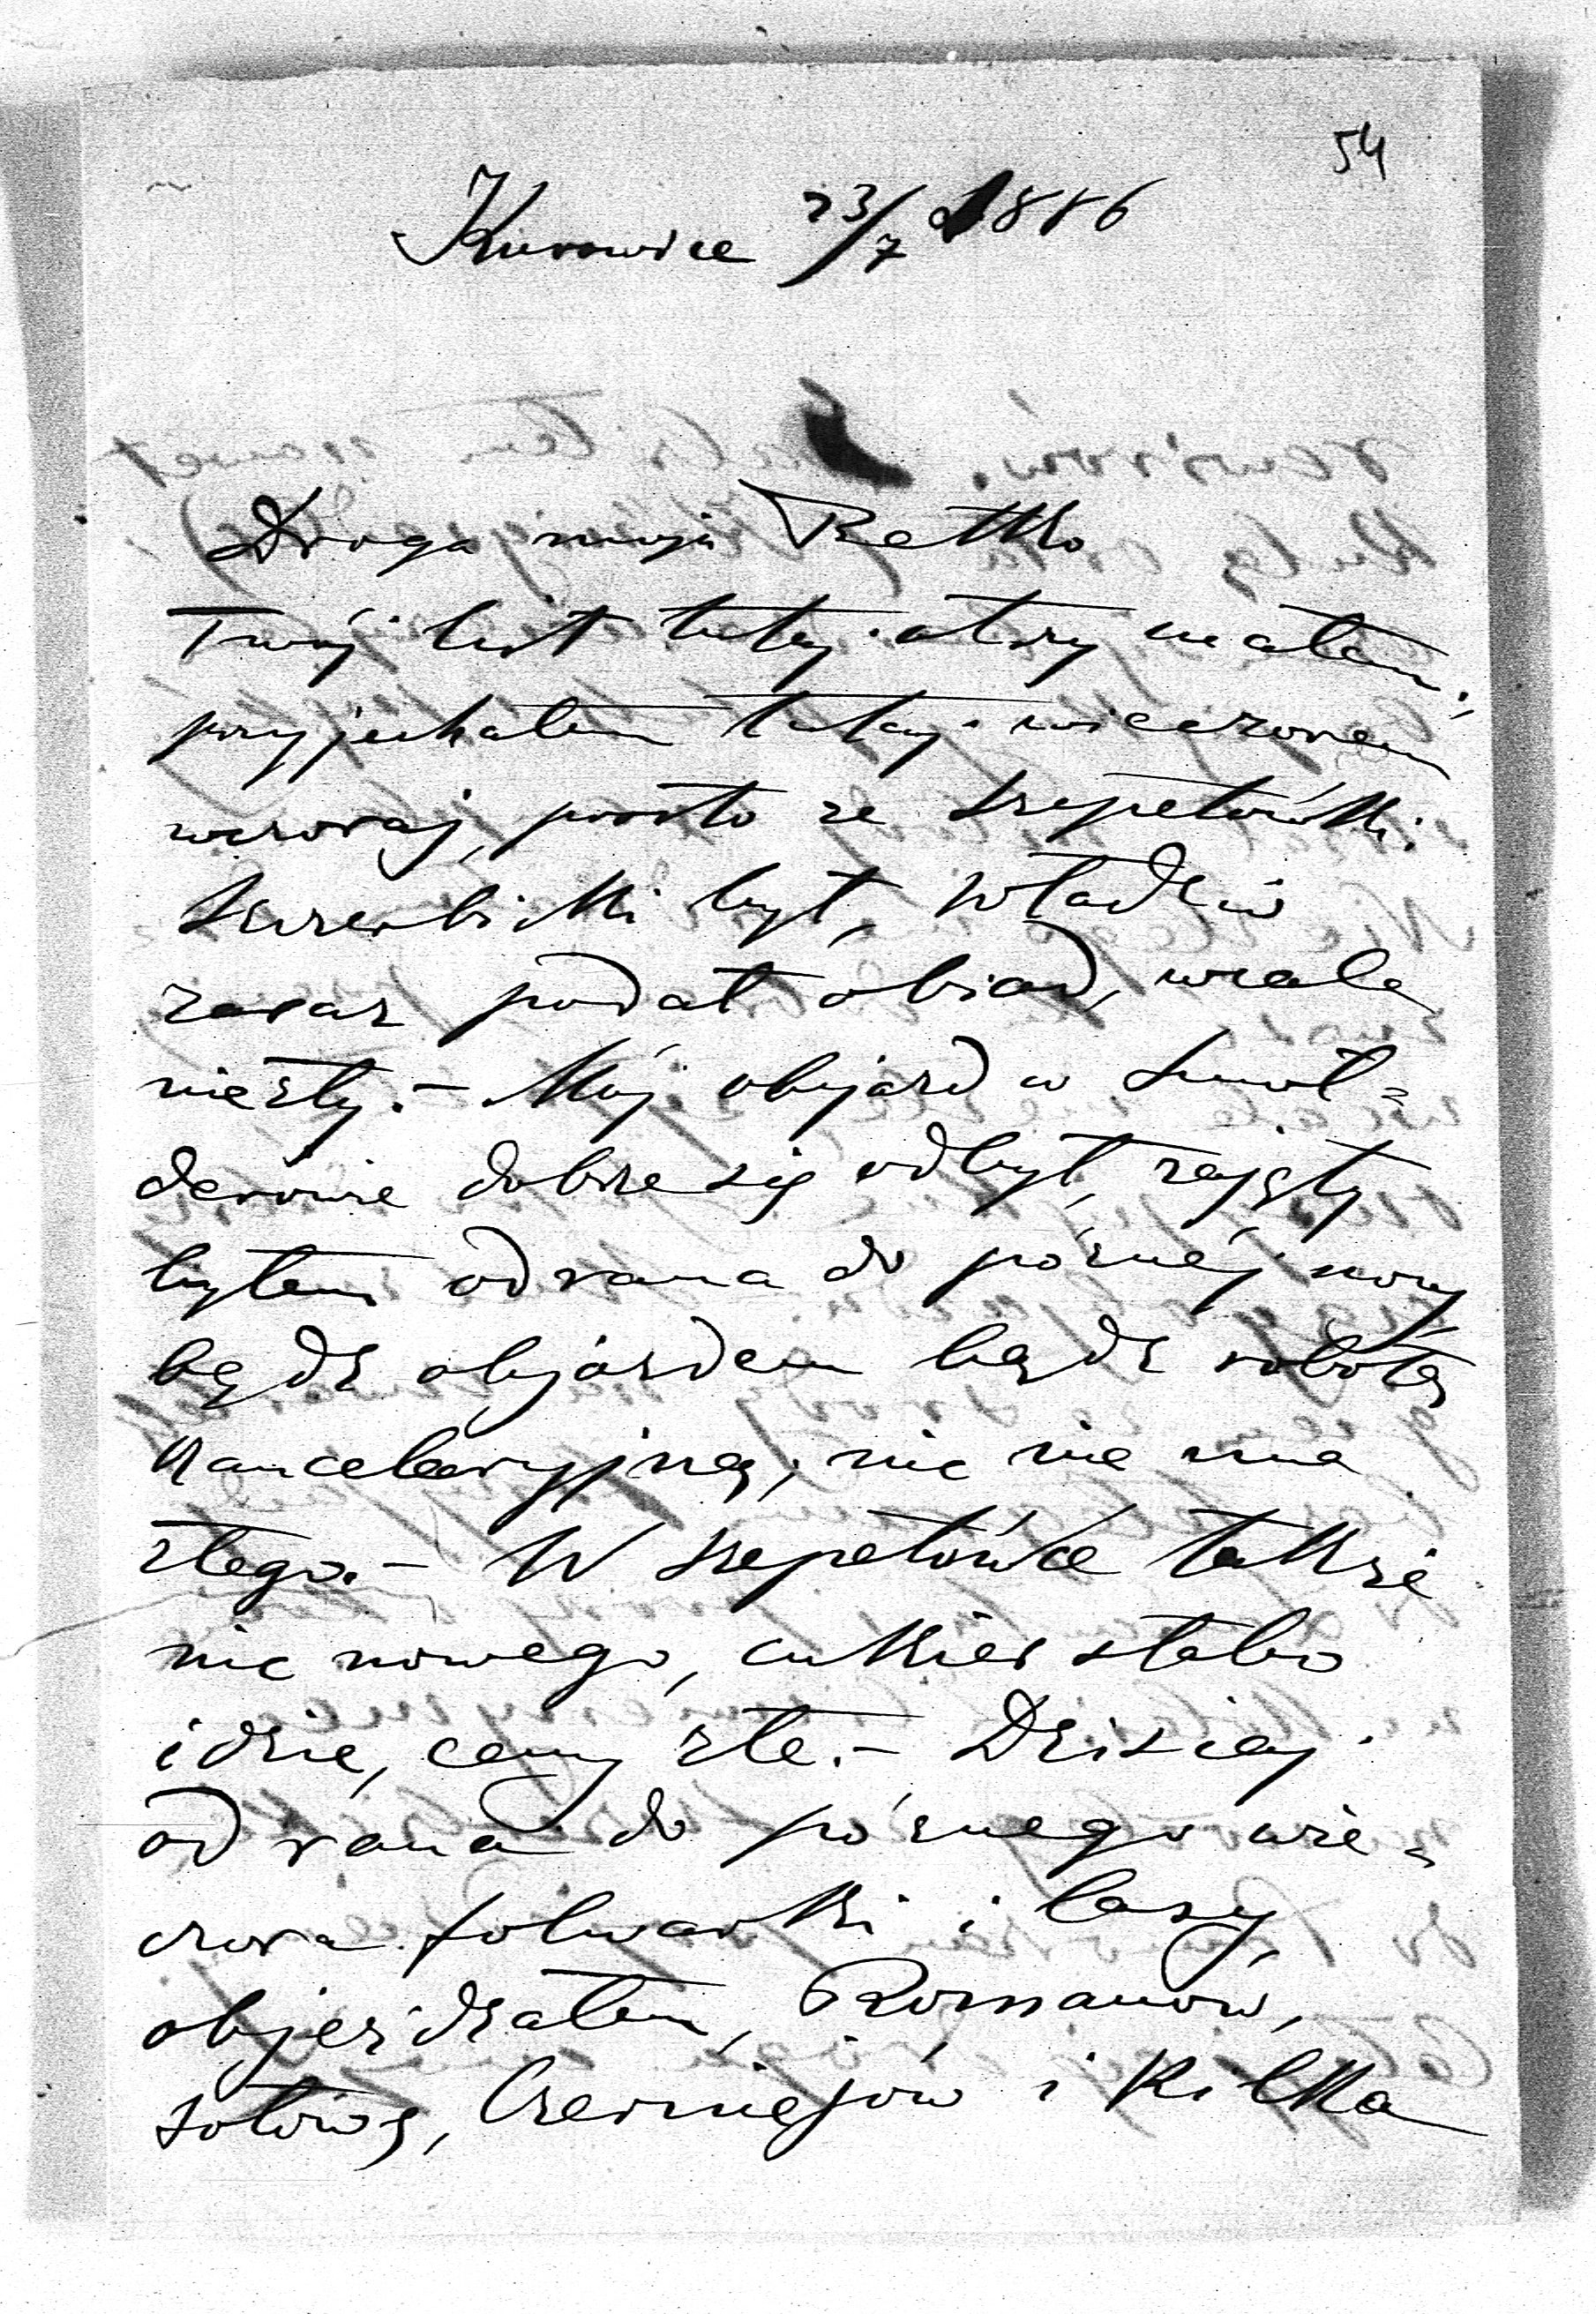 54
Kurowice 23/7 1886
Droga moja Betko
Twój list tutaj otrzymałem;
przyjechałem tutaj wieczorem
wczoraj, prosto ze Szepetówki.
był, Władzio
zaraz podał obiad, wcale
niezły.- Mój objazd w Smoł=
derowie dobrze się odbył, zajęty
byłem od rana do póznéj nocy
bądz objazdem bądz robotą
kancelaryjną; nic nie ma
złego.- W Szepetówce także
nic nowego, cukier słabo
idzie, ceny złe.- Dzisiaj
od rana do póznego wie=
czora folwarki i lasy
objezdzałem, Romanów,
Sołówę, Czerniejów i kilka